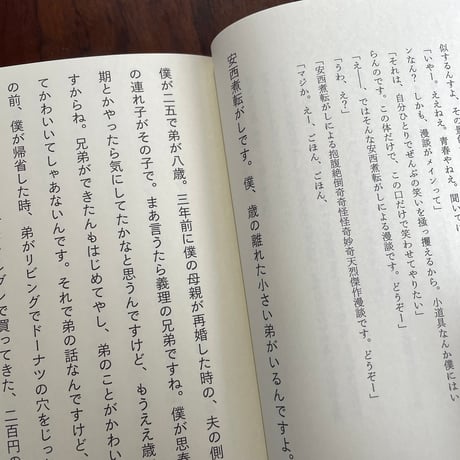 似するすよ、その影
「いやー。ええねえ。青春やねえ。聞いて
ンなん? しかも、漫談がメインって」
「それは、自分ひとりでぜんぶの笑いを掻っ攫えるから。小道具なんか僕にはい
らんのです。この体だけで、この口だけで笑わせてやりたい」
「えー、ではそんな安西煮転がしによる漫談です。どうぞー」
「うわ、え?」
「安西煮転がしによる抱腹絶倒奇奇怪怪奇妙奇天烈傑作漫談です。どうぞー」
「マジか。えー、ごほん、ごほん、
安西煮転がしです。僕、歳の離れた小さい弟がいるんですよ。
僕が二五で弟が八歳。三年前に僕の母親が再婚した時の、夫の側
の連れ子がその子で。まあ言うたら義理の兄弟ですね。僕が思春
期とかやったら気にしてたかなと思うんですけど、もうええ歳
すからね。兄弟ができたんもはじめてやし、弟のことがかわい
てかわいいてしゃあないんです。それで弟の話なんですけど、
の前、僕が帰省した時、弟がリビングでドーナツの穴をじっ
で買ってきた、二百円の